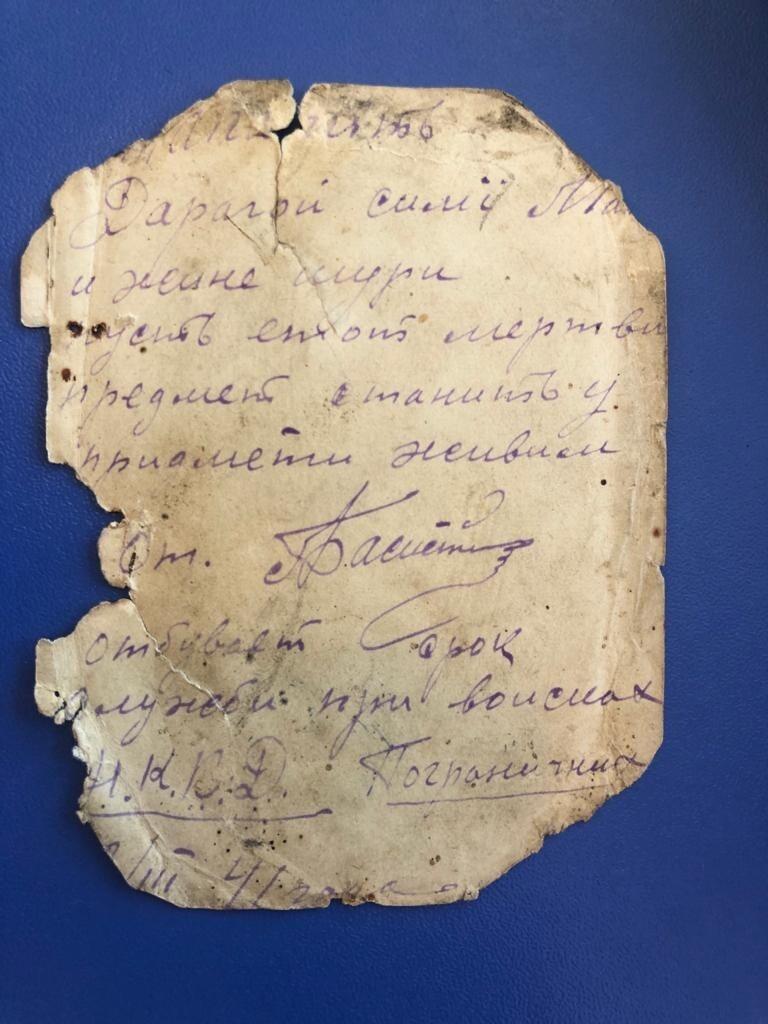 Дарагой симїї Ма
и жине шури
пусть етот мертви
предмет станить у
приамети живим
От.
отбувает срок
службы при воисках
Н.К.В.Д. Пограничних
/III 41 года